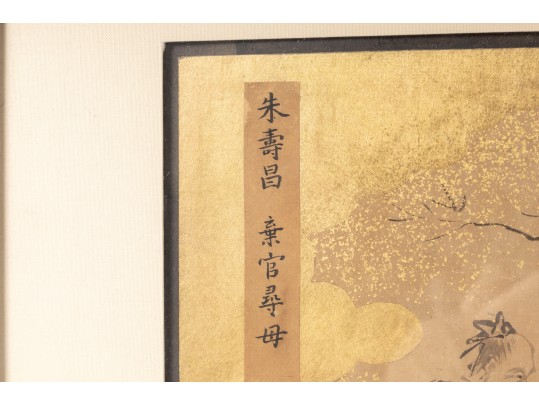 朱壽昌 棄官尋母